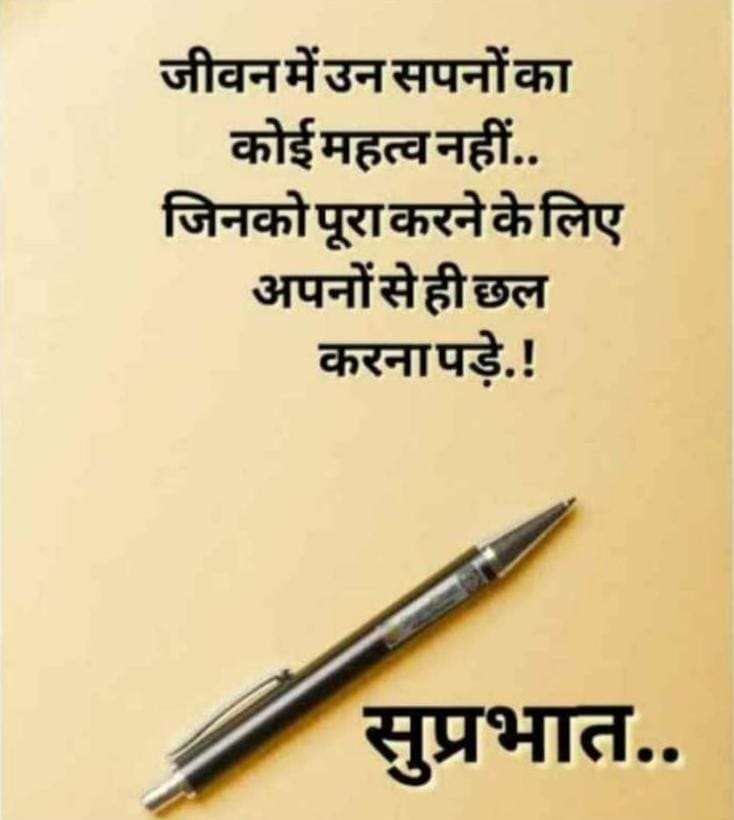 जीवन में उन सपनों का
कोई महत्व नहीं..
जिनको पूरा करने के लिए
अपनों से ही छल
करना पड़े.!
सुप्रभात..